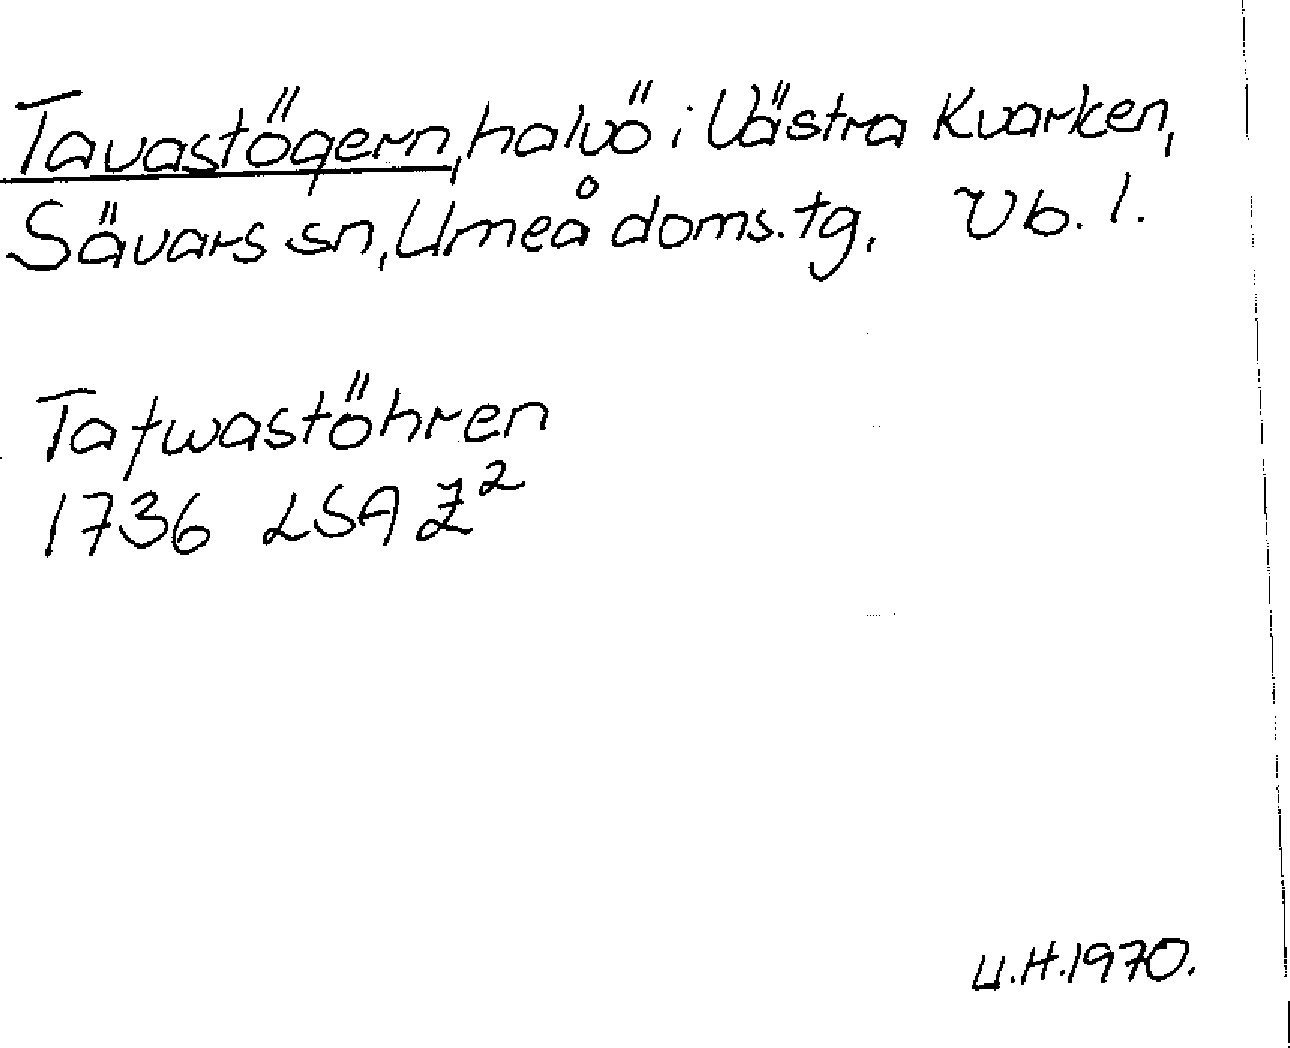 Tavastögern, halvö i Västra Kvarken,
Sävars sn, Umeå doms. tg. Vb. l.
Tafwastöhren
1736 LSA Z²
U.H. 1970.